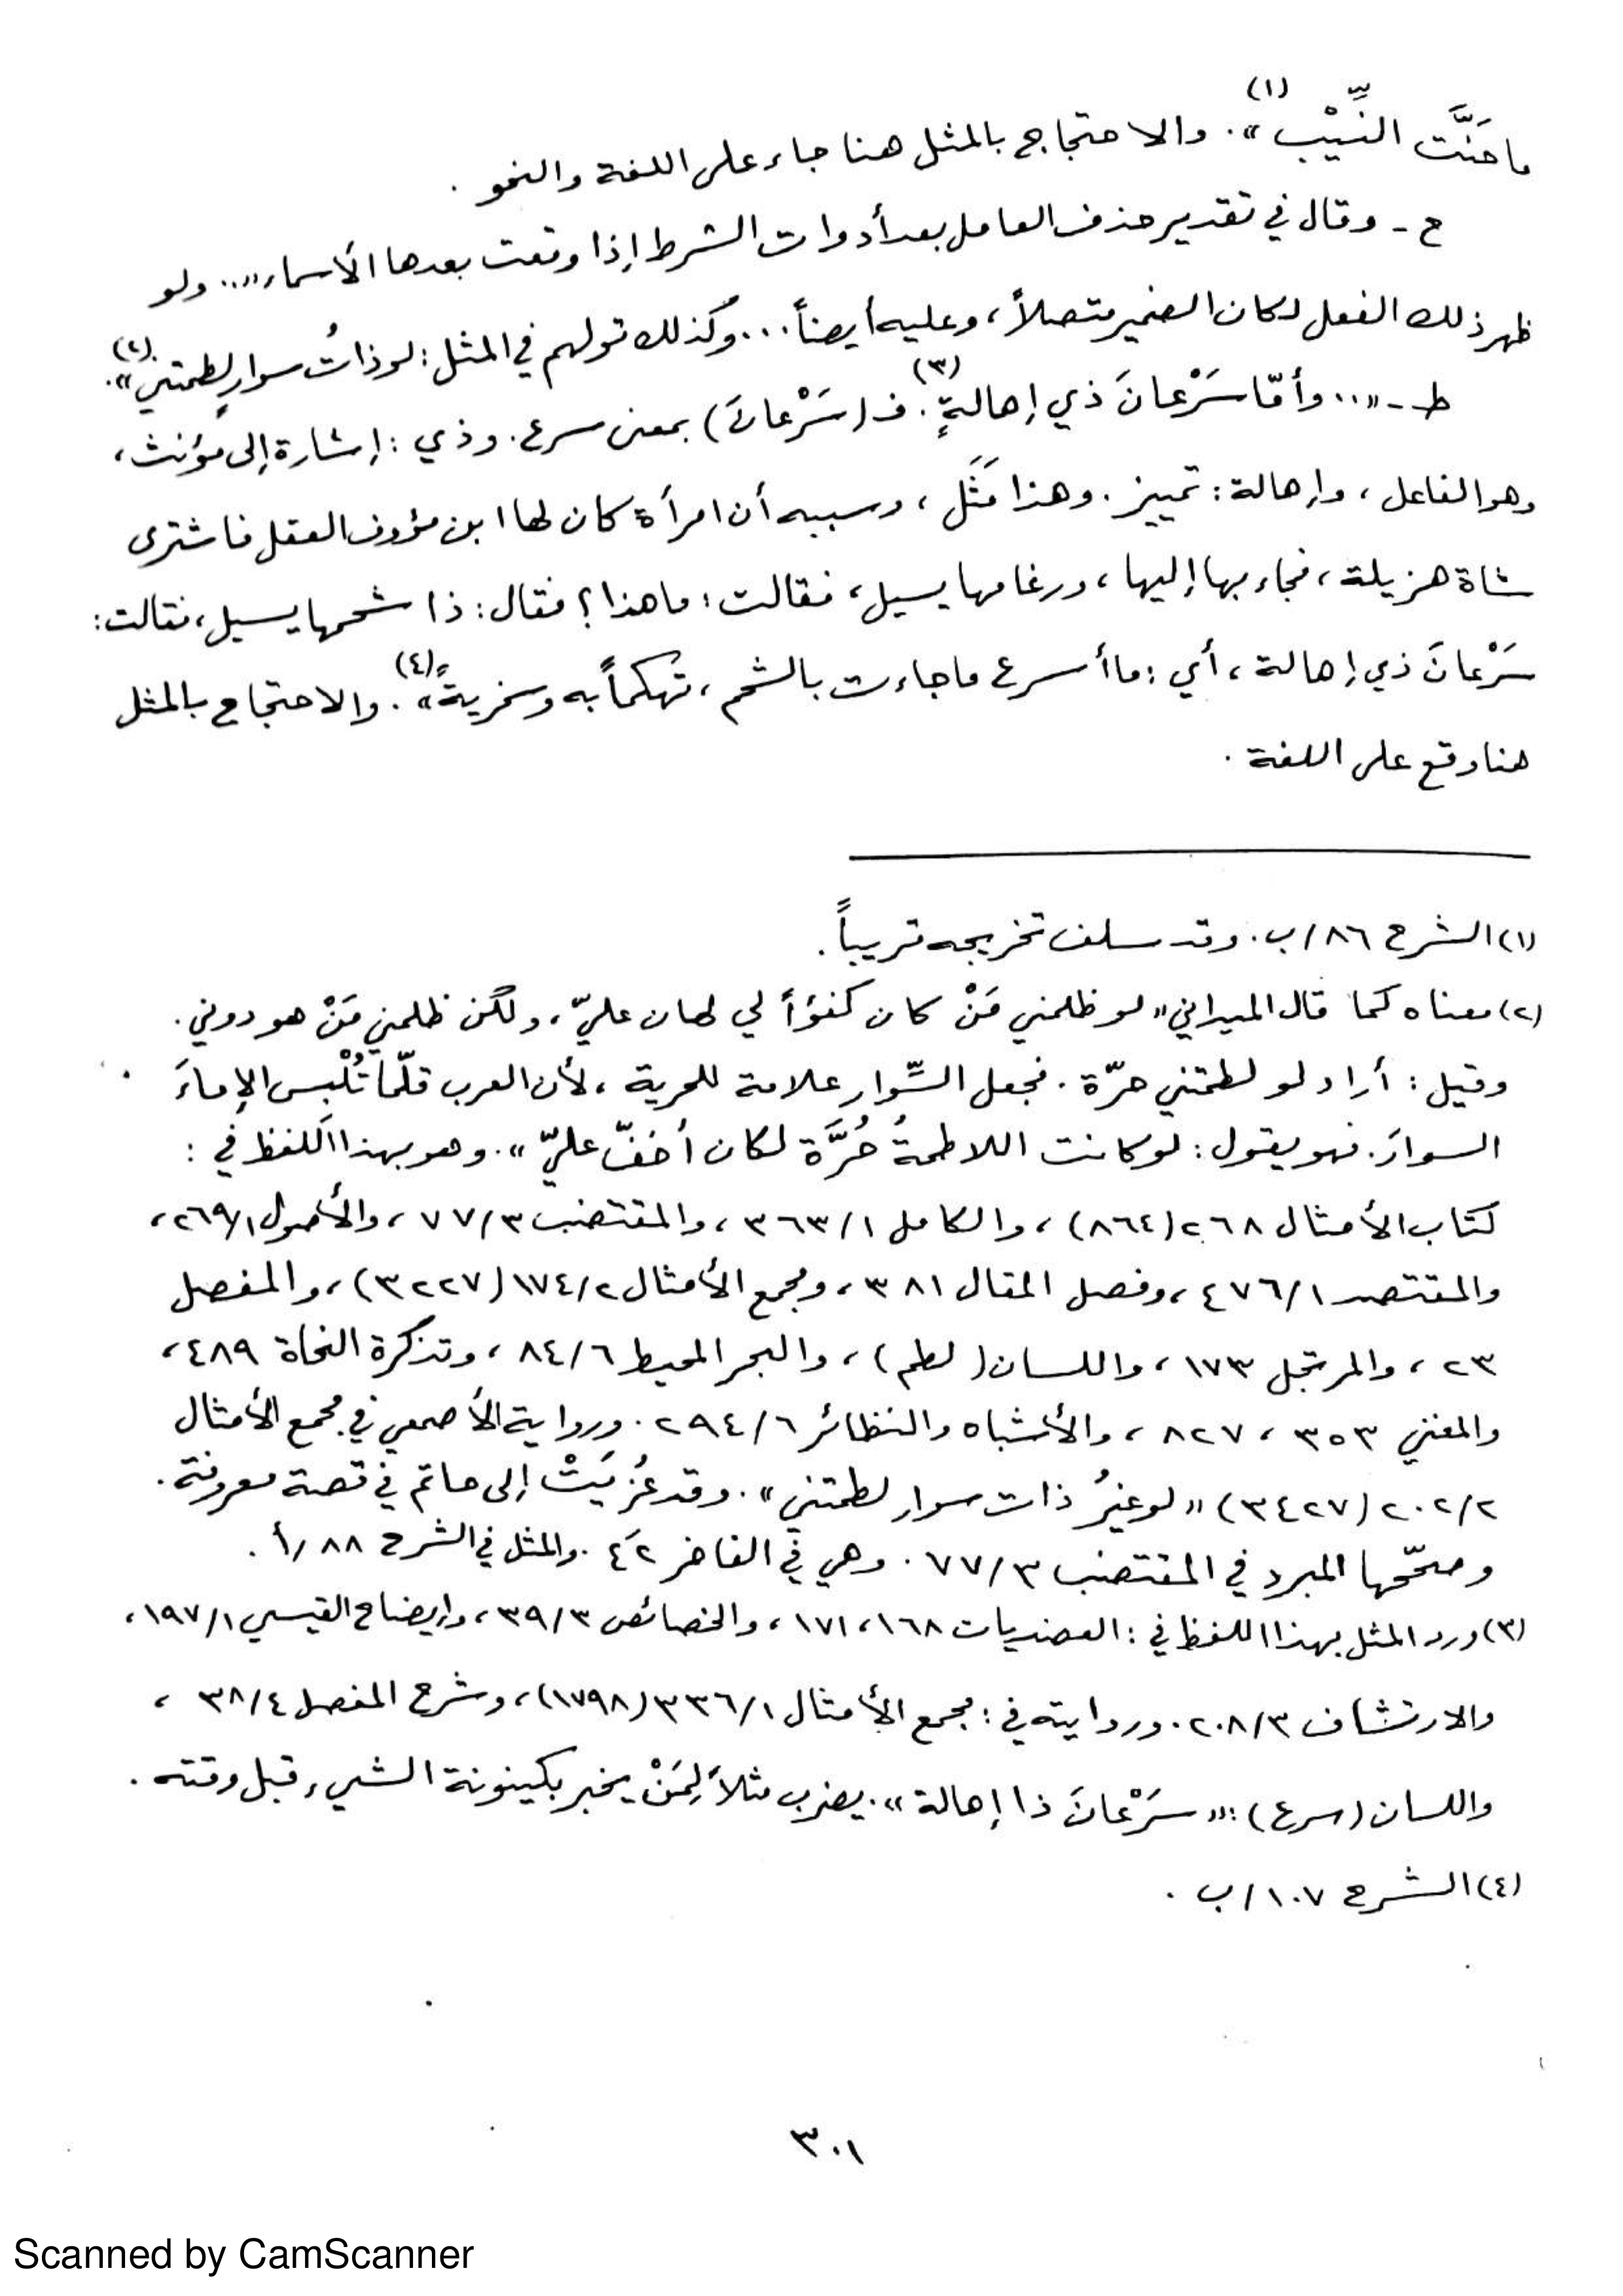 ما حَنَّت النِّيْب»(١). والاحتجاج بالمثل هنا جاء على اللغة والنحو.
ح - وقال في تقدير حذف العامل بعد أدوات الشرط إذا وقعت بعدها الأسماء «... ولو
ظهر ذلك الفعل لكان الضمير متصلاً، وعليه أيضاً... وكذلك قولهم في المثل: لو ذاتُ سوارٍ لطمتني»(٢).
ط - «... وأمّا سَرْعانَ ذي إهالةٍ(٣). فـ (سَرْعانَ) بمعنى سرع. وذي: إشارة إلى مؤنث،
وهو الفاعل، وإهالة: تمييز. وهذا مَثَل، وسببه أن امرأة كان لها ابن مؤوف العقل فاشترى
شاة هزيلة، فجاء بها إليها، ورغامها يسيل، فقالت: ما هذا؟ فقال: ذا شحمها يسيل، فقالت:
سَرْعانَ ذي إهالة، أي: ما أسرع ما جاءت بالشحم، تهكماً به وسخريةً»(٤). والاحتجاج بالمثل
هنا وقع على اللغة.
(١) الشرح ٨٦/ب. وقد سلف تخريجه قريباً.
(٢) معناه كما قال الميداني «لو ظلمني مَنْ كان كفؤاً لي لهان عليّ، ولكن ظلمني مَنْ هو دوني.
وقيل: أراد لو لطمتني حرّة. فجعل السِّوار علامة للحرية، لأن العرب قلّما تُلْبس الإماءَ
السوارَ. فهو يقول: لو كانت اللاطمةُ حُرَّة لكان أخفّ عليّ». وهو بهذا اللفظ في:
كتاب الأمثال ٢٦٨ (٨٦٤)، والكامل ٣٦٣/١، والمقتضب ٧٧/٣، والأصول ٢٦٩/١،
والمقتصد ٤٧٦/١، وفصل المقال ٣٨١، ومجمع الأمثال ١٧٤/٢ (٣٢٢٧)، والمفصل
٢٣، والمرتجل ١٧٣، واللسان (لطم)، والبحر المحيط ٨٤/٦، وتذكرة النحاة ٤٨٩،
والمغني ٣٥٣، ٨٢٧، والأشباه والنظائر ٢٩٤/٦. ورواية الأصمعي في مجمع الأمثال
٢٠٢/٢ (٣٤٢٧) «لو غيرُ ذات سوار لطمتني». وقد عُزِيَتْ إلى حاتم في قصة معروفة.
وصحّحها المبرد في المقتضب ٧٧/٣. وهي في الفاخر ٤٢. والمثل في الشرح ٨٨/أ.
(٣) ورد المثل بهذا اللفظ في: العضديات ١٦٨، ١٧١، والخصائص ٣٩/٣، وإيضاح القيسي ١٩٧/١،
والارتشاف ٢٠٨/٣. وروايته في: مجمع الأمثال ٣٣٦/١ (١٧٩٨)، وشرح المفصل ٣٨/٤،
واللسان (سرع): «سَرْعانَ ذا إهالة». يضرب مثلاً لِمَنْ يخبر بكينونة الشيء قبل وقته.
(٤) الشرح ١٠٧/ب.
٣٠١
Scanned by CamScanner